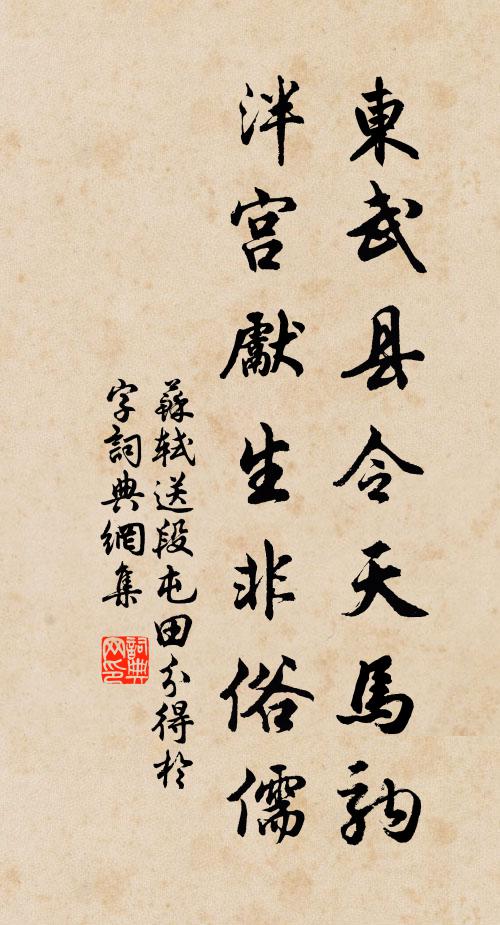 東武县令天馬駒
泮宫獻生非俗儒
蘇軾送段屯田分得於
字詞典網集
詞典网印